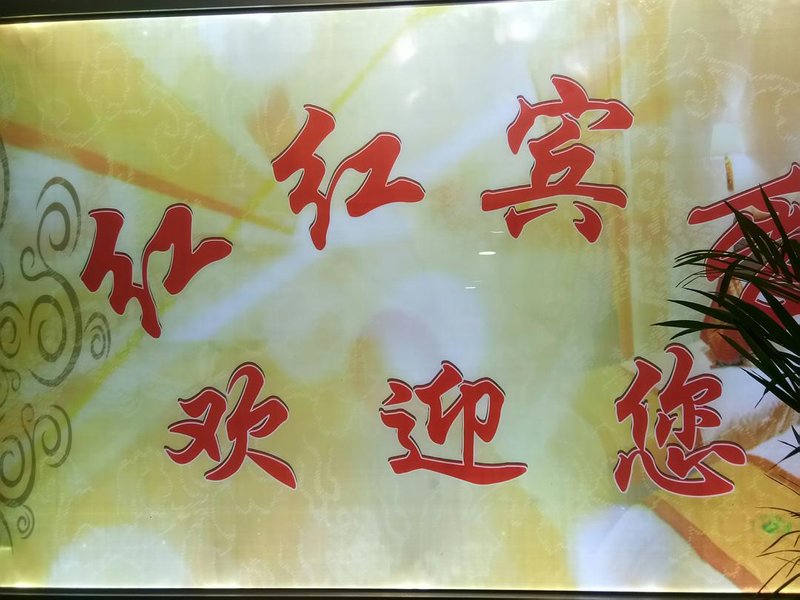 红红宾
欢迎您